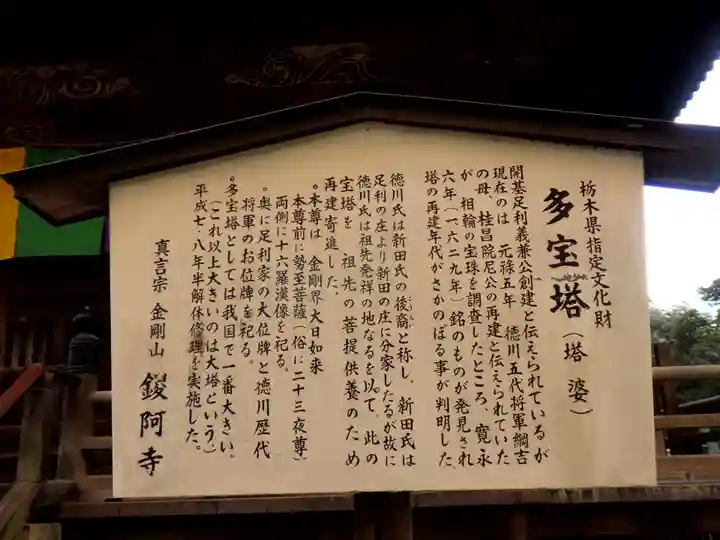 栃木県指定文化財
多宝塔（塔婆）
開基足利義兼公創建と伝えられているが
現在のは　元禄五年　徳川五代将軍綱吉
の母、桂昌院尼公の再建と伝えられていた
が　相輪の宝珠を調査したところ、寛永
六年（一六二九年）銘のものが発見され
塔の再建年代がさかのぼる事が判明した
徳川氏は新田氏の後裔と称し、新田氏は
足利の庄より新田の庄に分家したるが故に
徳川氏は祖先発祥の地なるを以て、此の
宝塔を　祖先の菩提供養のため
再建寄進した。
。本尊は　金剛界大日如来
本尊前に勢至菩薩（俗に二十三夜尊）
両側に十六羅漢像を祀る。
。奥に足利家の大位牌と徳川歴代
将軍のお位牌を祀る。
。多宝塔としては我国で一番大きい。
（これ以上大きいのは大塔という。）
平成七・八年半解体修理を実施した。
真言宗　金剛山　鑁阿寺